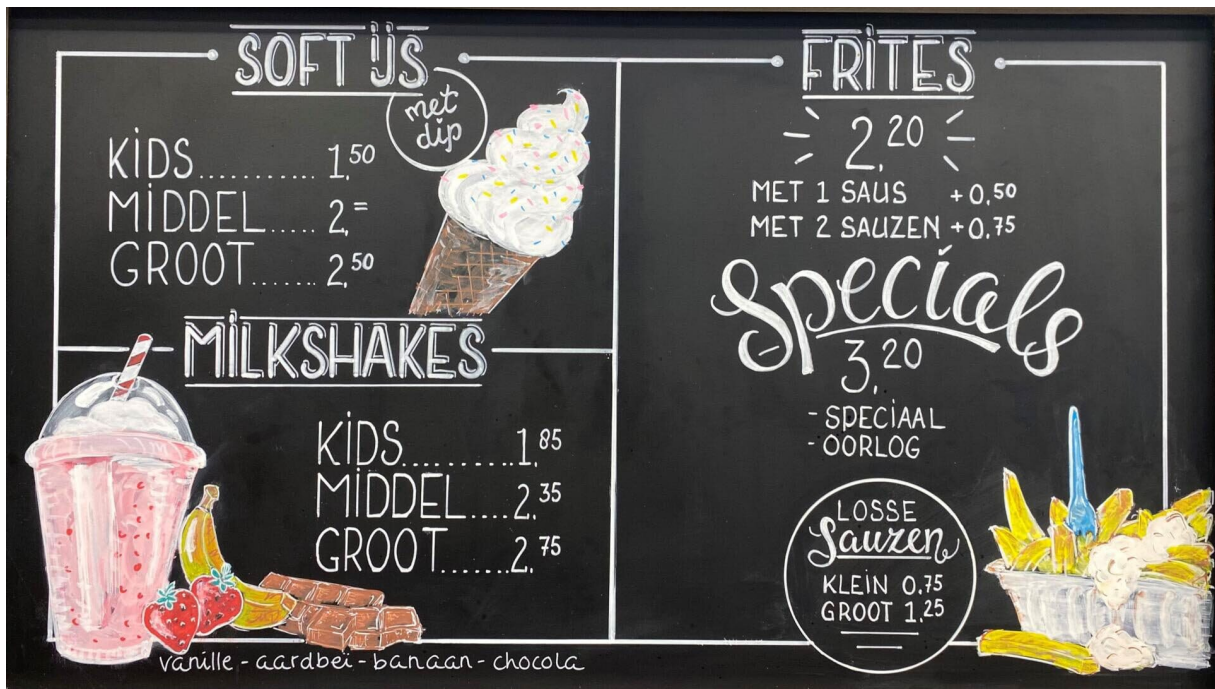 SOFT IJS
met
dip
KIDS........... 1,50
MIDDEL..... 2,=
GROOT....... 2,50
MILKSHAKES
KIDS..........1,85
MIDDEL....2,35
GROOT.......2,75
vanille - aardbei - banaan - chocola
FRITES
2,20
MET 1 SAUS +0,50
MET 2 SAUZEN +0,75
Specials
3,20
- SPECIAAL
- OORLOG
LOSSE
Sauzen
KLEIN 0,75
GROOT 1,25